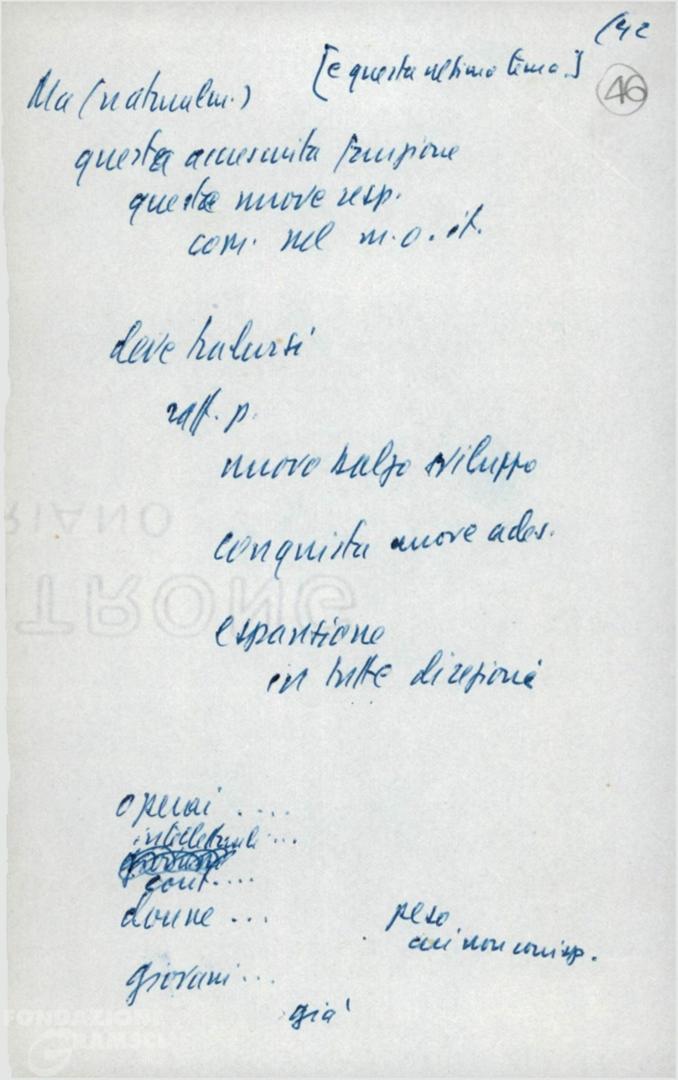 (42
[e questo ultimo tema.]
46
Ma (naturalm.)
questa accresciuta funzione
queste nuove resp.
com. nel m.o. it.
deve tradursi
raff. p.
nuovo balzo sviluppo
conquista nuove ades.
espansione
in tutte direzioni
operai ....
intellettuali ...
cont. ...
donne ...
peso
cui non corrisp.
giovani ...
già
RIANO
TRONG
FONDAZIONE
GRAMSCI